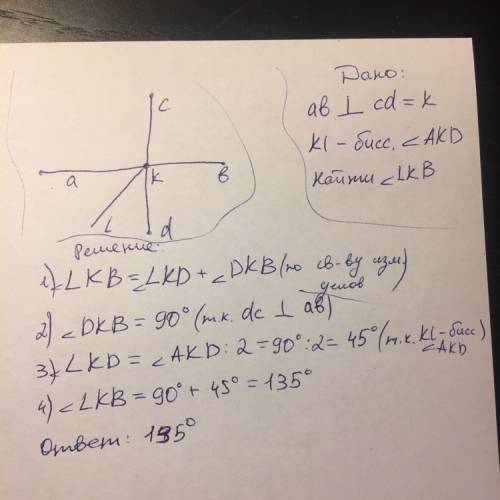 c
a
к
в
L
d
Дано:
ав ⊥ cd = к
Kl – бисс. ∠AKD
Найти ∠LKB
Решение:
1) ∠LKB = ∠LKD + ∠DKB (по св-ву изм. углов)
2) ∠DKB = 90° (т.к. dc ⊥ ав)
3) ∠LKD = ∠AKD : 2 = 90° : 2 = 45° (т.к. Kl – бисс) ∠AKD
4) ∠LKB = 90° + 45° = 135°
Ответ: 135°